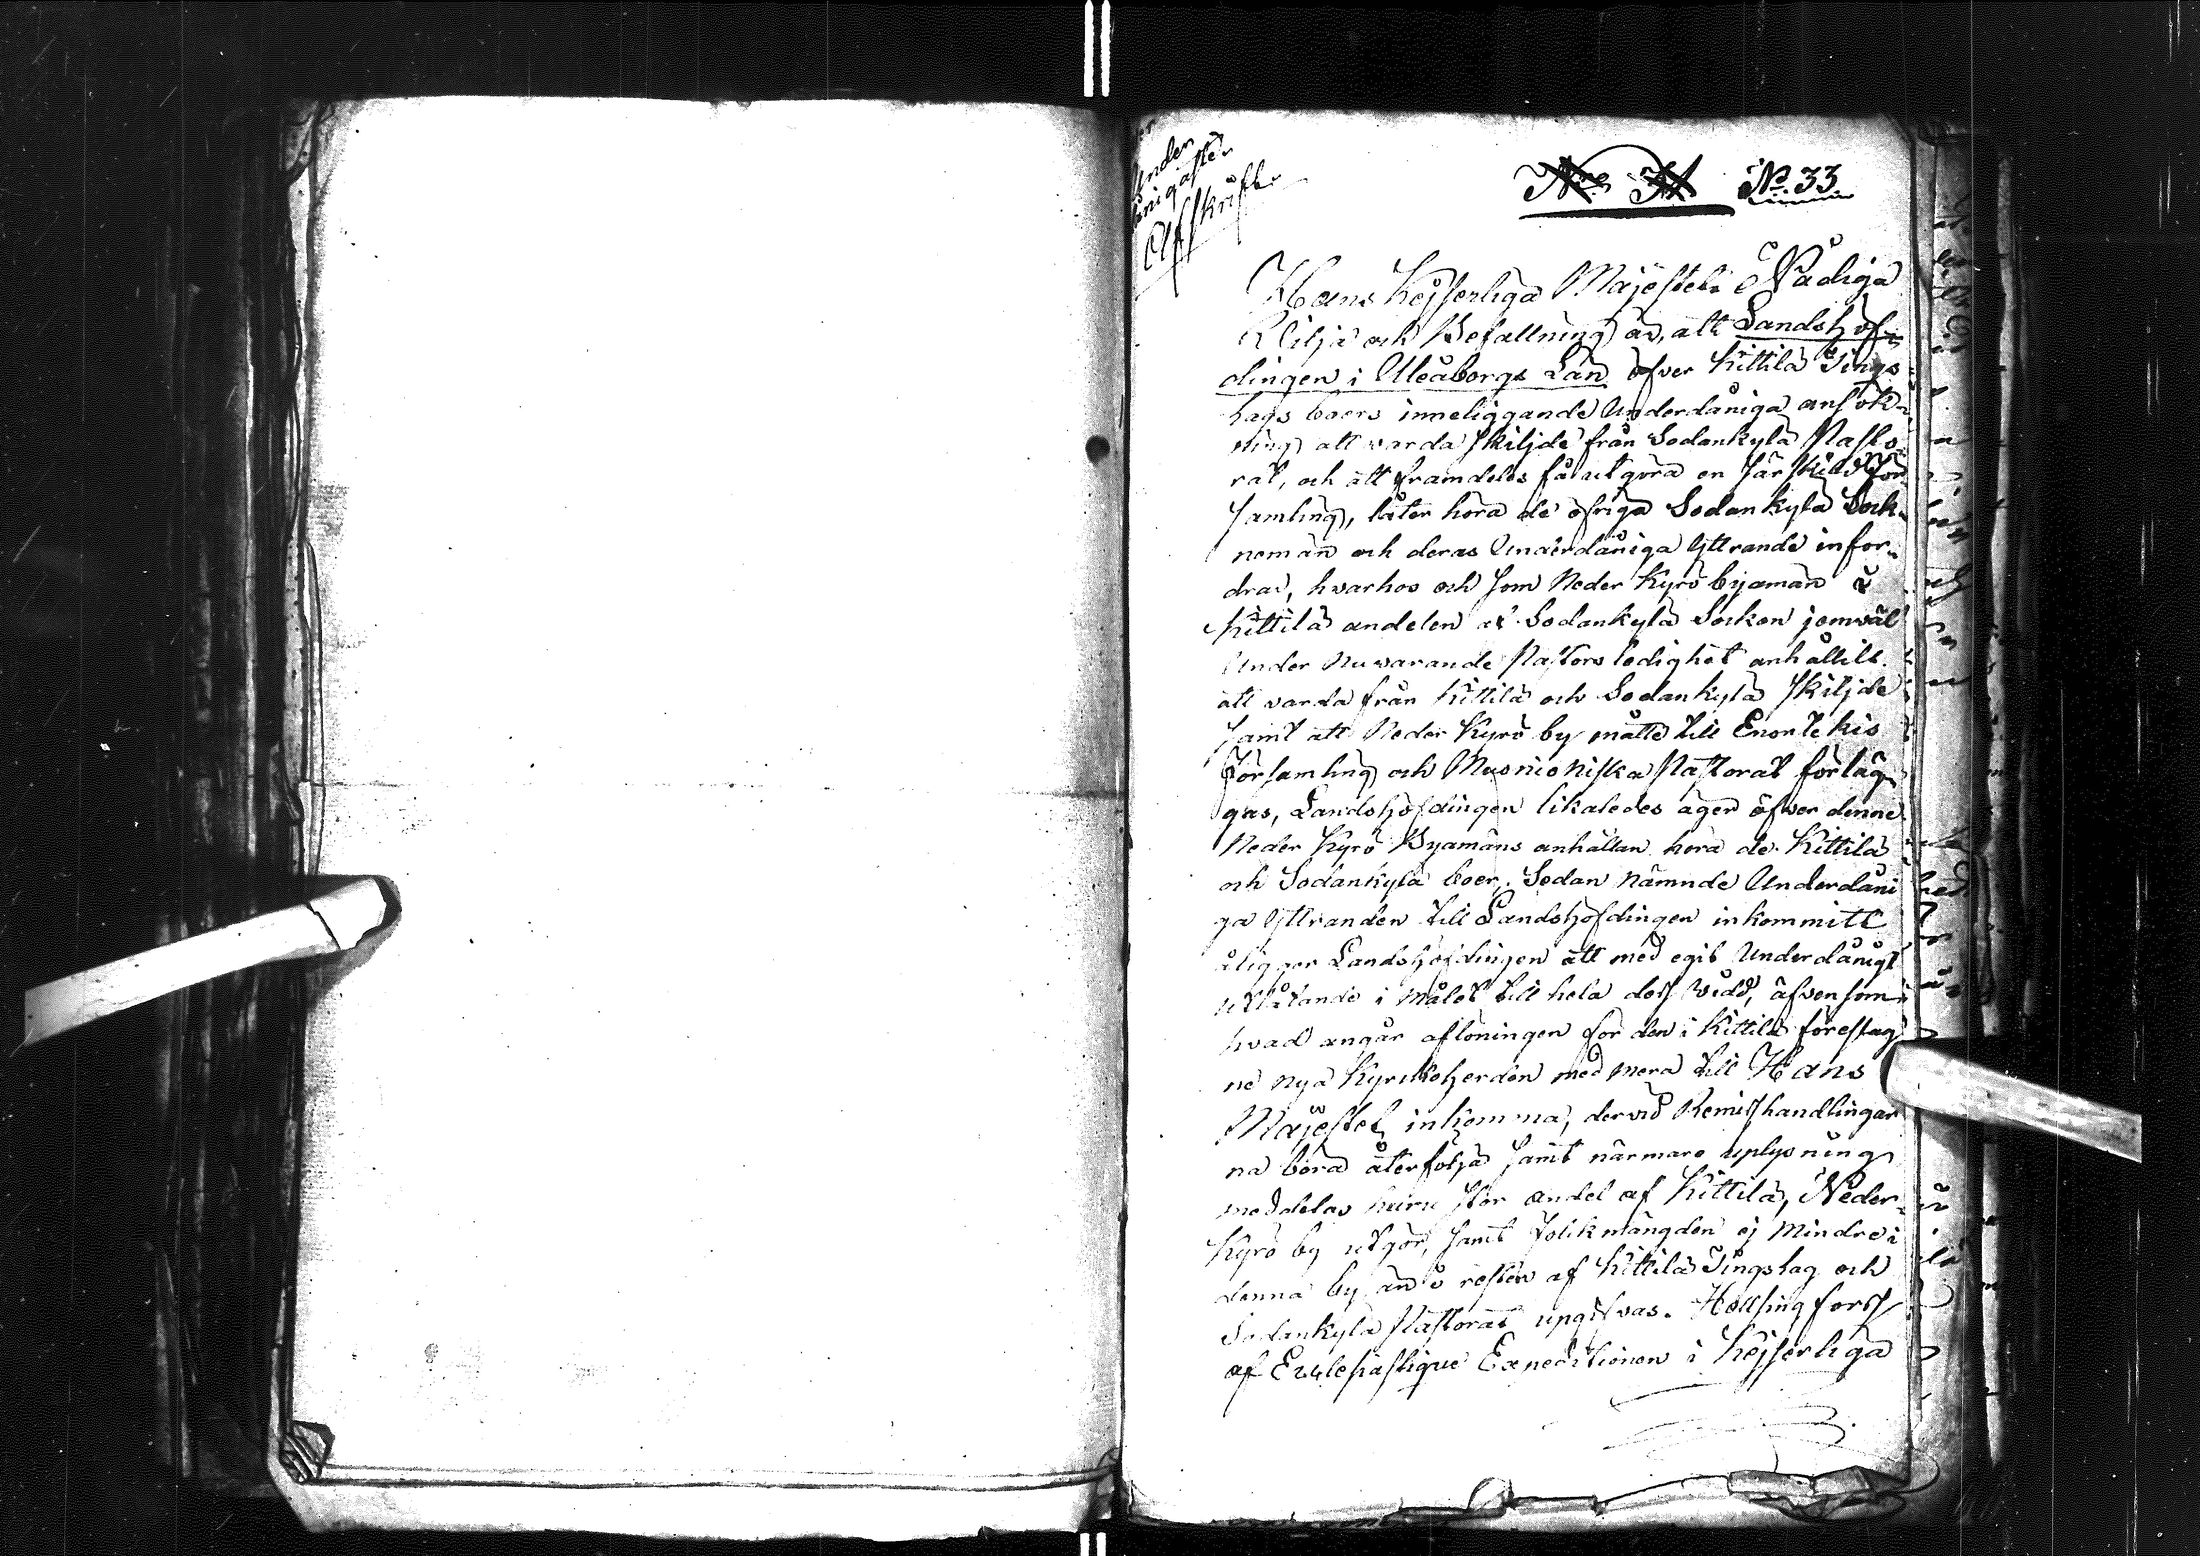 under
dånigaste
Afskrift.
No. 33.
Hans Kejserliga Majestets Nådiga
Vilja och Befallning är, att Landshöf-
dingen i Uleåborgs Län öfver Kittilä Tings-
lags boers inneliggande Underdåniga ansök-
ning att varda skiljde från Sodankylä Pasto-
rat, och att framdeles få utgöra en särskild För-
samling, låter höra de öfriga Sodankylä Sock-
nemän och deras Underdåniga Yttrande infor-
drar, hvarhos och som Neder Kyrö byamän i
Kittilä andelen af Sodankylä Socken jemväl
Under Nuvarande Pastors ledighet anhållit
att varda från Kittilä och Sodankylä skiljde
samt att Neder Kyrö by måtte till Enontekis
Församling och Muonioniska Pastorat förläg-
gas, Landshöfdingen likaledes äger öfver denne
Neder Kyrö Byamäns anhållan höra de Kittilä
och Sodankylä boer. Sedan nämnde Underdåni
ga Yttranden till Landshöfdingen inkommitt
åligger Landshöfdingen att med egit Underdånigt
utlåtande i målet till hela dess vidd, äfvensom
hvad angår aflöningen för den i Kittilä föreslag
ne nya Kyrkoherden med mera till Hans
Majestet inkomma, dervid Remisshandlingar
na böra återfölja samt närmare uplysning
meddelas huru stor andel af Kittilä, Neder-
Kyrö by utgör, samt folkmängden ej mindre i
denna by än i resten af Kittilä Tingslag och
Sodankylä Pastorat upgifvas. Helsingfors
af Ecclesiastique Expeditionen i Kejserliga